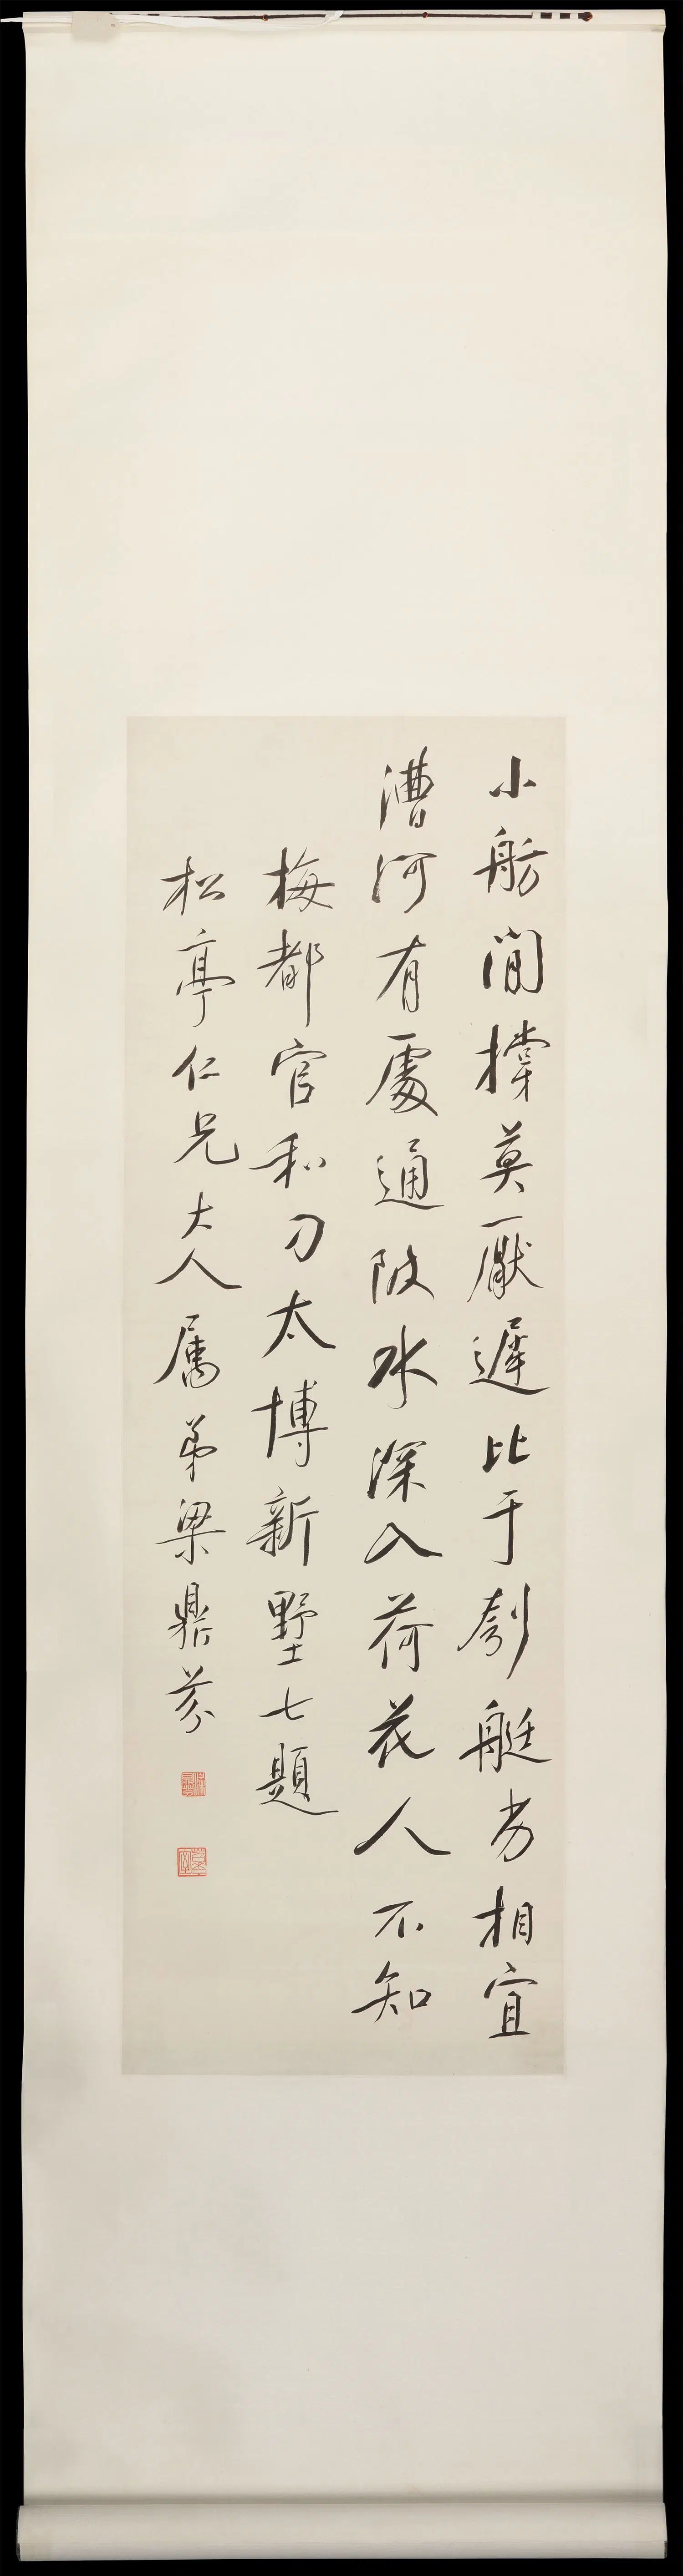 小舫閒撐莫厭遲比于刳艇尚相宜
漕河有處通陂水深入荷花人不知
梅都官和刀太博新墅七題
松亭仁兄大人屬弟梁鼎芬